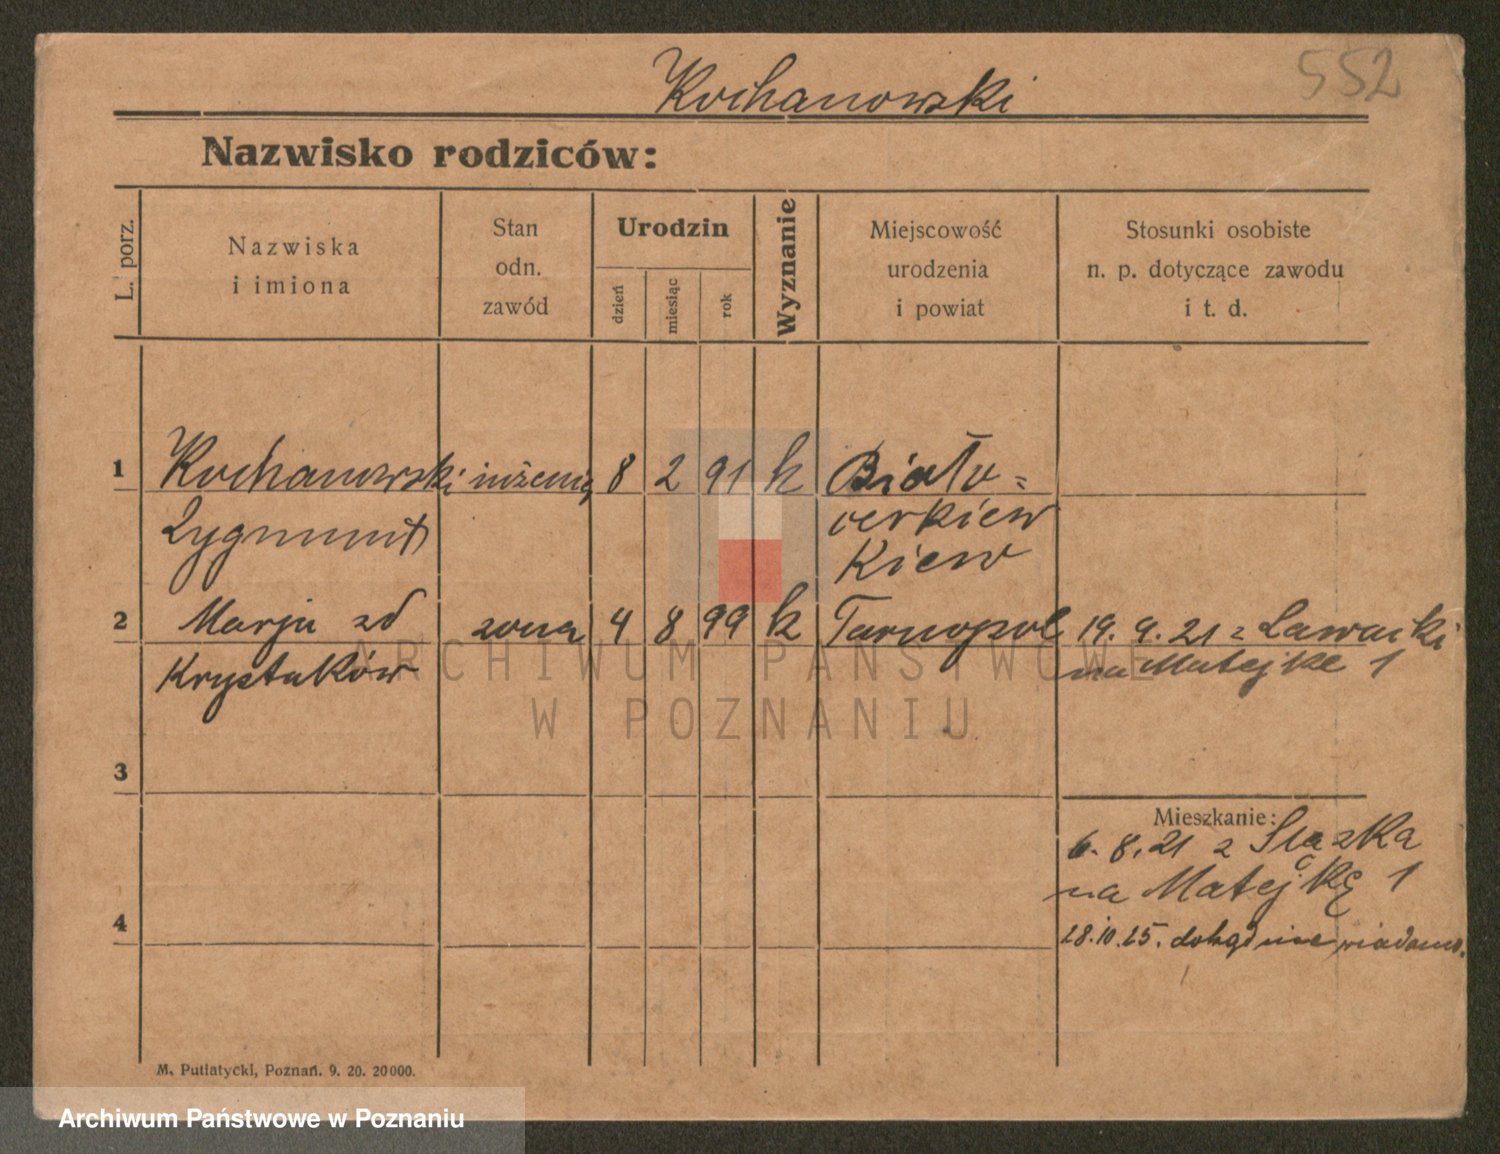 552
Kochanowski
Nazwisko rodziców:
L. porz.
Nazwiska
i imiona
Stan
odn.
zawód
Urodzin
dzień
miesiąc
rok
Wyznanie
Miejscowość
urodzenia
i powiat
Stosunki osobiste
n. p. dotyczące zawodu
i t. d.
1 Kochanowski inżenię 8 2 91 k Biało=
Zygmunt cerkiew
Kiew
2 Marja zd żona 4 8 99 k Tarnopol 19. 9. 21 z Ławicki
Krystaków na Matejkę 1
3
Mieszkanie:
6. 8. 21 z Slązka
na Matejkę 1
4
28.10.25. dokąd nie wiadomo.
M. Putiatycki, Poznań. 9. 20. 20000.
ARCHIWUM PAŃSTWOWE
W POZNANIU
Archiwum Państwowe w Poznaniu